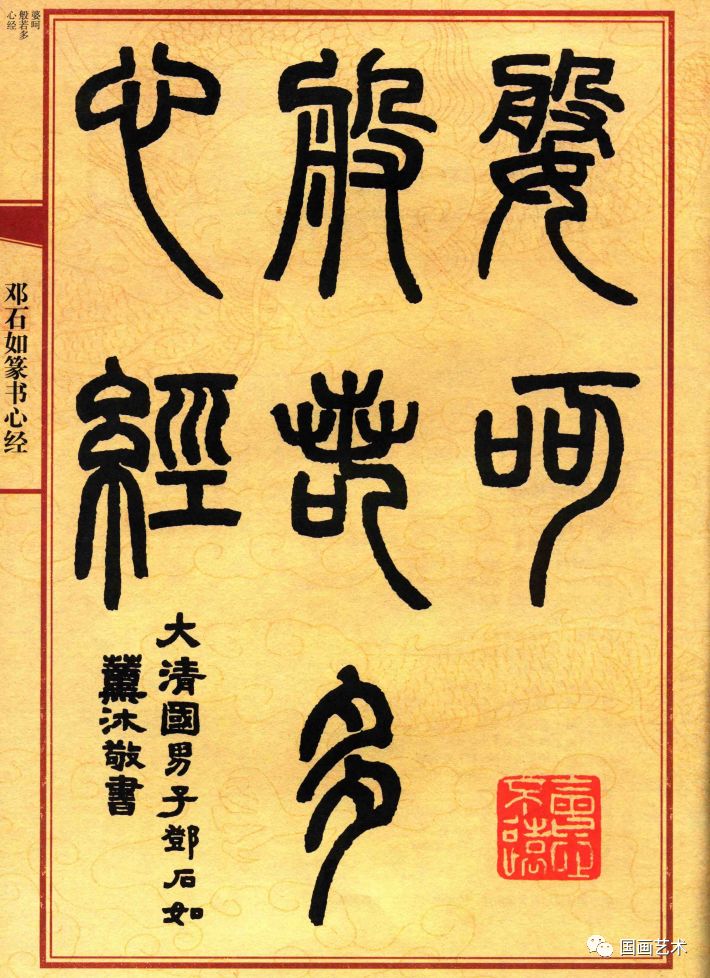 婆呵
般若多
心經
大清國男子鄧石如
薰沐敬書
婆呵
般若多
心经
邓石如篆书心经
国画艺术